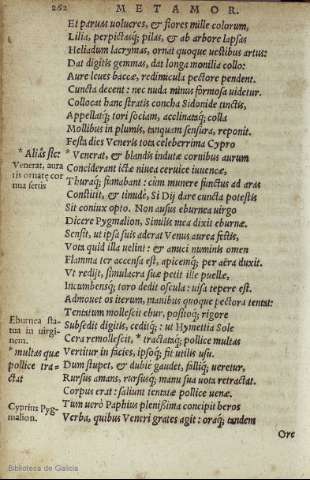 262 METAMOR.
Et paruas uolucres, & flores mille colorum,
Lilia, perpictasq; pilas, & ab arbore lapsas
Heliadum lacrymas, ornat quoque uestibus artus:
Dat digitis gemmas, dat longa monilia collo:
Aure leues baccæ, redimicula pectore pendent.
Cuncta decent: nec nuda minus formosa uidetur.
Collocat hanc stratis concha Sidonide tinctis,
Appellatq; tori sociam, acclinataq; colla
Mollibus in plumis, tanquam sensura, reponit.
Festa dies Veneris tota celeberrima Cypro
* Venerat, & blandis indutæ cornibus aurum
Conciderant ictæ niuea ceruice iuuencæ,
Thuraq; fumabant: cùm munere functus ad aras
Constitit, & timidè, Si Dij dare cuncta potestis
Sit coniux opto. Non ausus eburnea uirgo
Dicere Pygmalion, Similis mea dixit eburnæ.
Sensit, ut ipsa suis aderat Venus aurea festis,
Vota quid illa uelint: & amici numinis omen
Flamma ter accensa est, apicemq; per aëra duxit.
Vt redijt, simulacra suæ petit ille puellæ,
Incumbensq; toro dedit oscula: uisa tepere est.
Admouet os iterum, manibus quoque pectora tentat:
Tentatum mollescit ebur, positoq; rigore
Subsedit digitis, ceditq; : ut Hymettia Sole
Cera remollescit, * tractataq; pollice multas
Vertitur in facies, ipsoq; fit utilis usu.
Dum stupet, & dubiè gaudet, falliq; ueretur,
Rursus amans, rursusq; manu sua uota retractat.
Corpus erat: saliunt tentatæ pollice uenæ.
Tum uerò Paphius plenissima concipit heros
Verba, quibus Veneri grates agit: oraq; tandem
Ore
* Aliàs sic:
Venerat, aura
tis ornatæ cor
nua sertis
Eburnea sta-
tua in uirgi-
nem.
* multas quæ
pollice tra-
ctat
Cyprius Pyg-
malion.
Biblioteca de Galicia